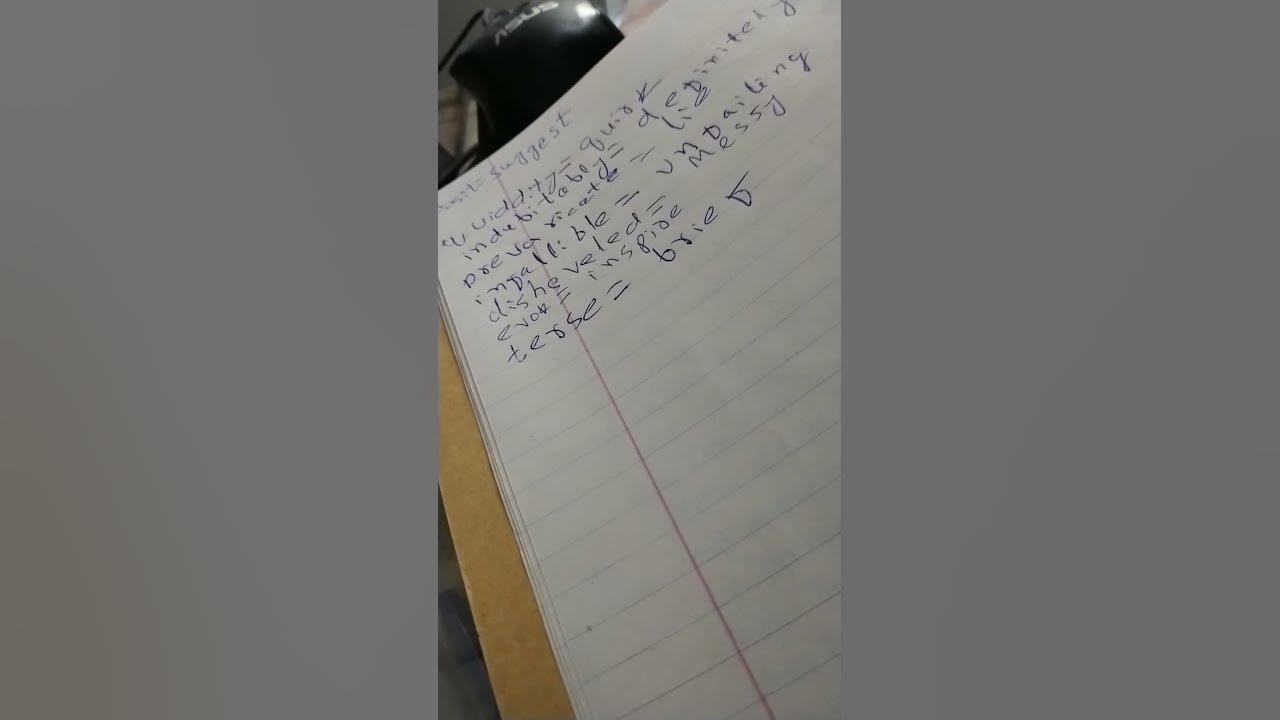 ASUS
posit = suggest
quiddity = quirk
indubitably = definitely
prevaricate = lie
infallible = unfailing
disheveled = messy
evok = inspire
terse = brief